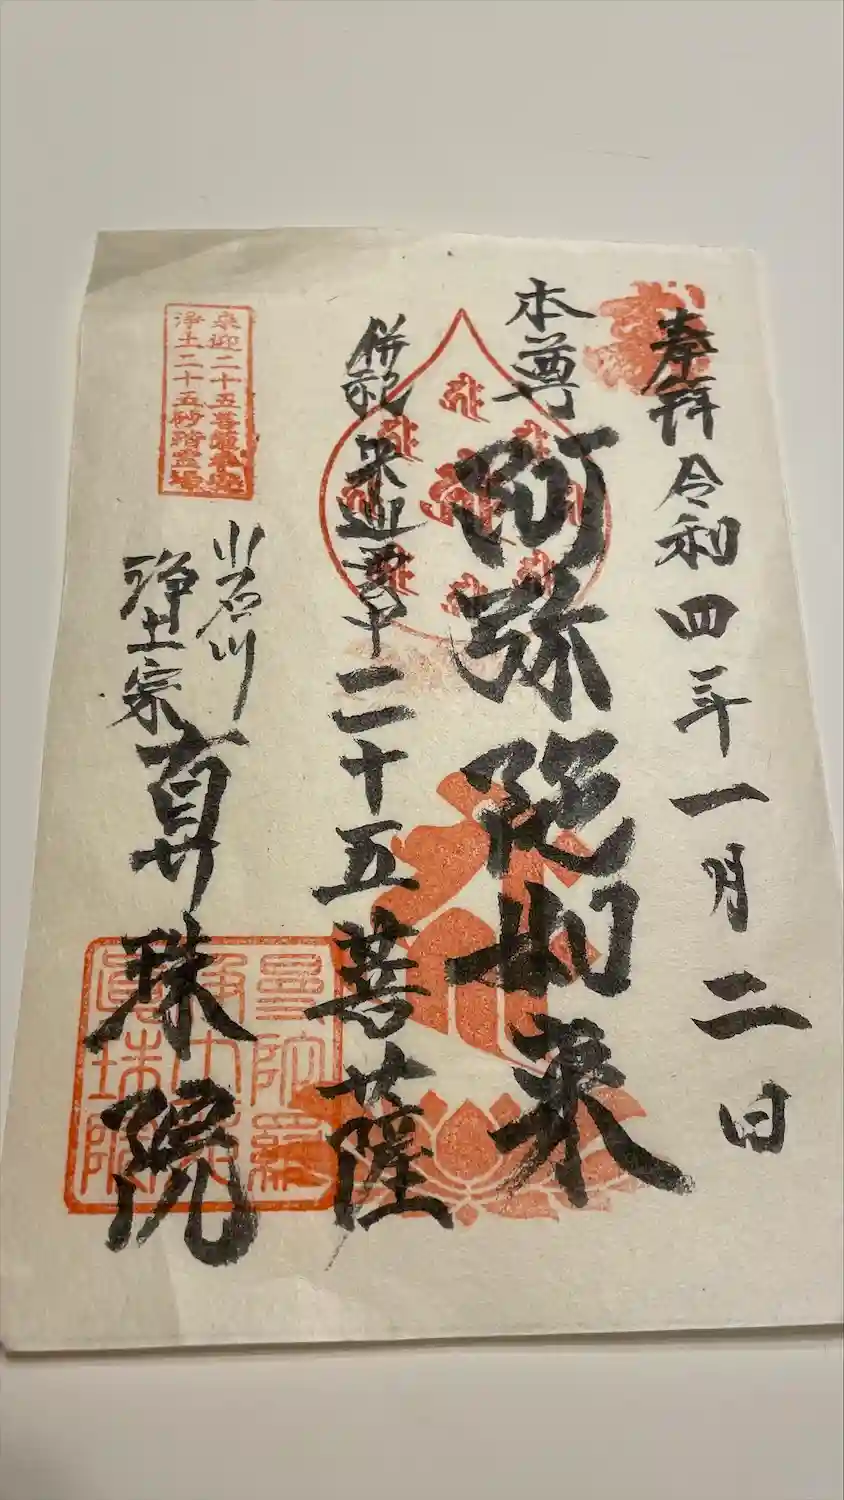 奉拝 令和四年一月二日
本尊 阿弥陀如来
併祀 来迎 二十五菩薩
小石川
浄土宗 真珠院
来迎二十五菩薩奉安
浄土二十五砂踏霊場
曼陀羅
真珠院